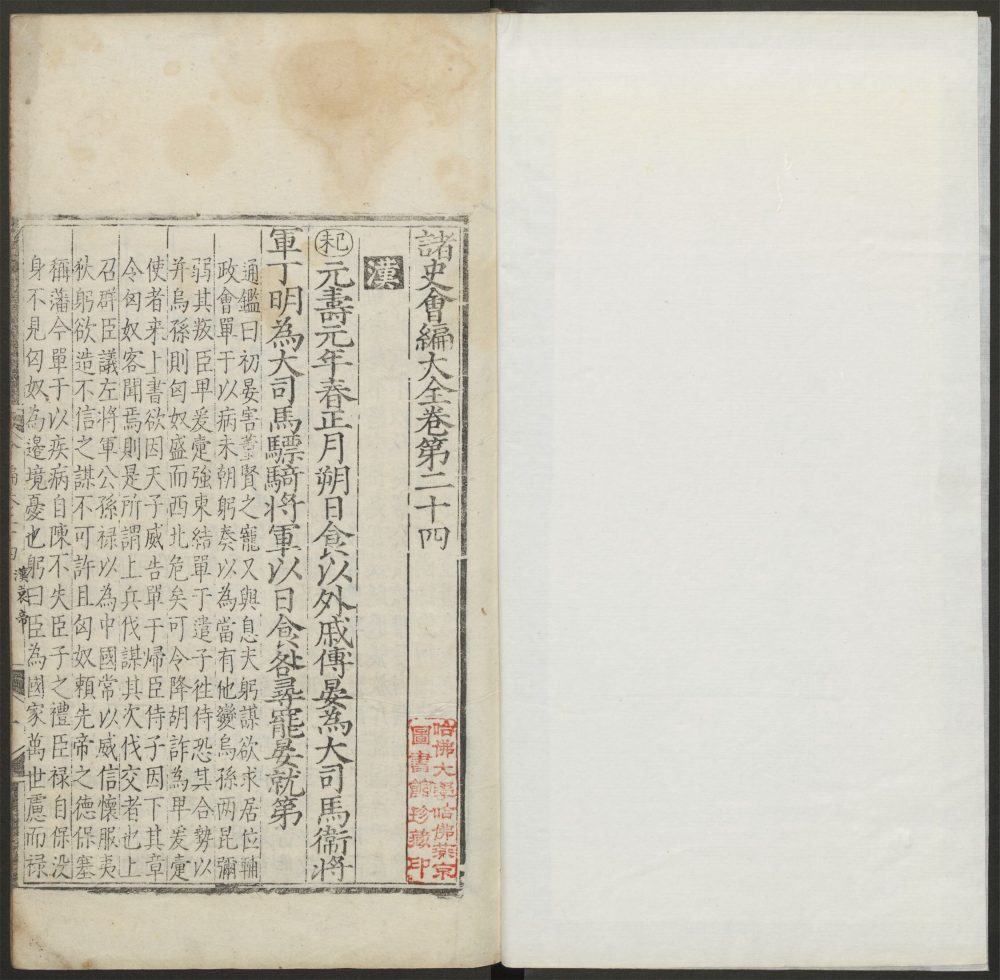 諸史會編大全卷第二十四
哈佛大學哈佛燕京
圖書館珍藏印
漢
元壽元年春正月朔日食以外戚傅晏為大司馬衛將
軍丁明為大司馬驃騎將軍以日食咎尋罷晏就第
通鑑曰初晏害董賢之寵又與息夫躬謀欲求居位輔
政會單于以病未朝躬奏以為當有他變烏孫两昆彌
弱其叛臣卑爰疐強東結單于遣子徃侍恐其合勢以
并烏孫則匈奴盛而西北危矣可令降胡詐為卑爰疐
使者来上書欲因天子威告單于歸臣侍子因下其章
令匈奴客聞焉則是所謂上兵伐謀其次伐交者也上
召群臣議左將軍公孫禄以為中國常以威信懷服夷
狄躬欲造不信之謀不可許且匈奴頼先帝之德保塞
稱藩今單于以疾病自陳不失臣子之禮臣禄自保没
身不見匈奴為邉境憂也躬曰臣為國家萬世慮而禄
漢哀帝